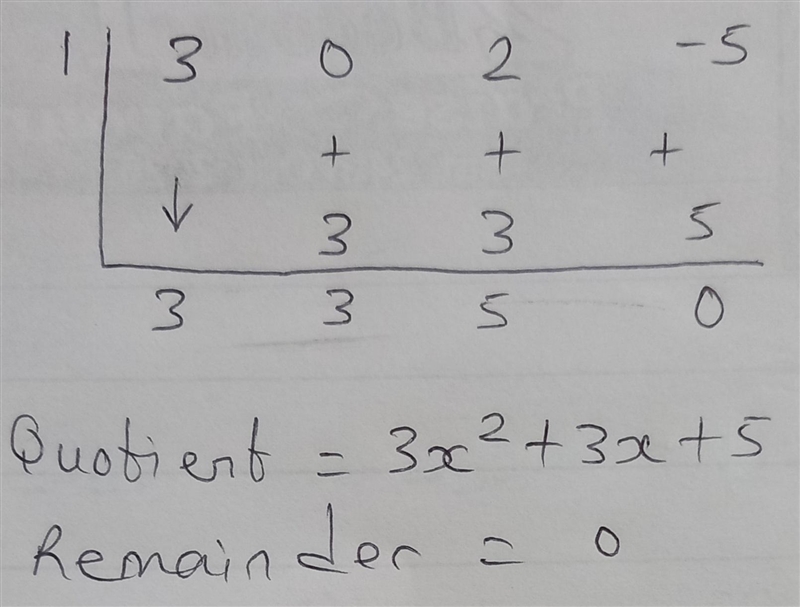 1 | 3 0 2 -5
+ + +
↓ 3 3 5
3 3 5 0
Quotient = 3x² + 3x + 5
Remainder = 0